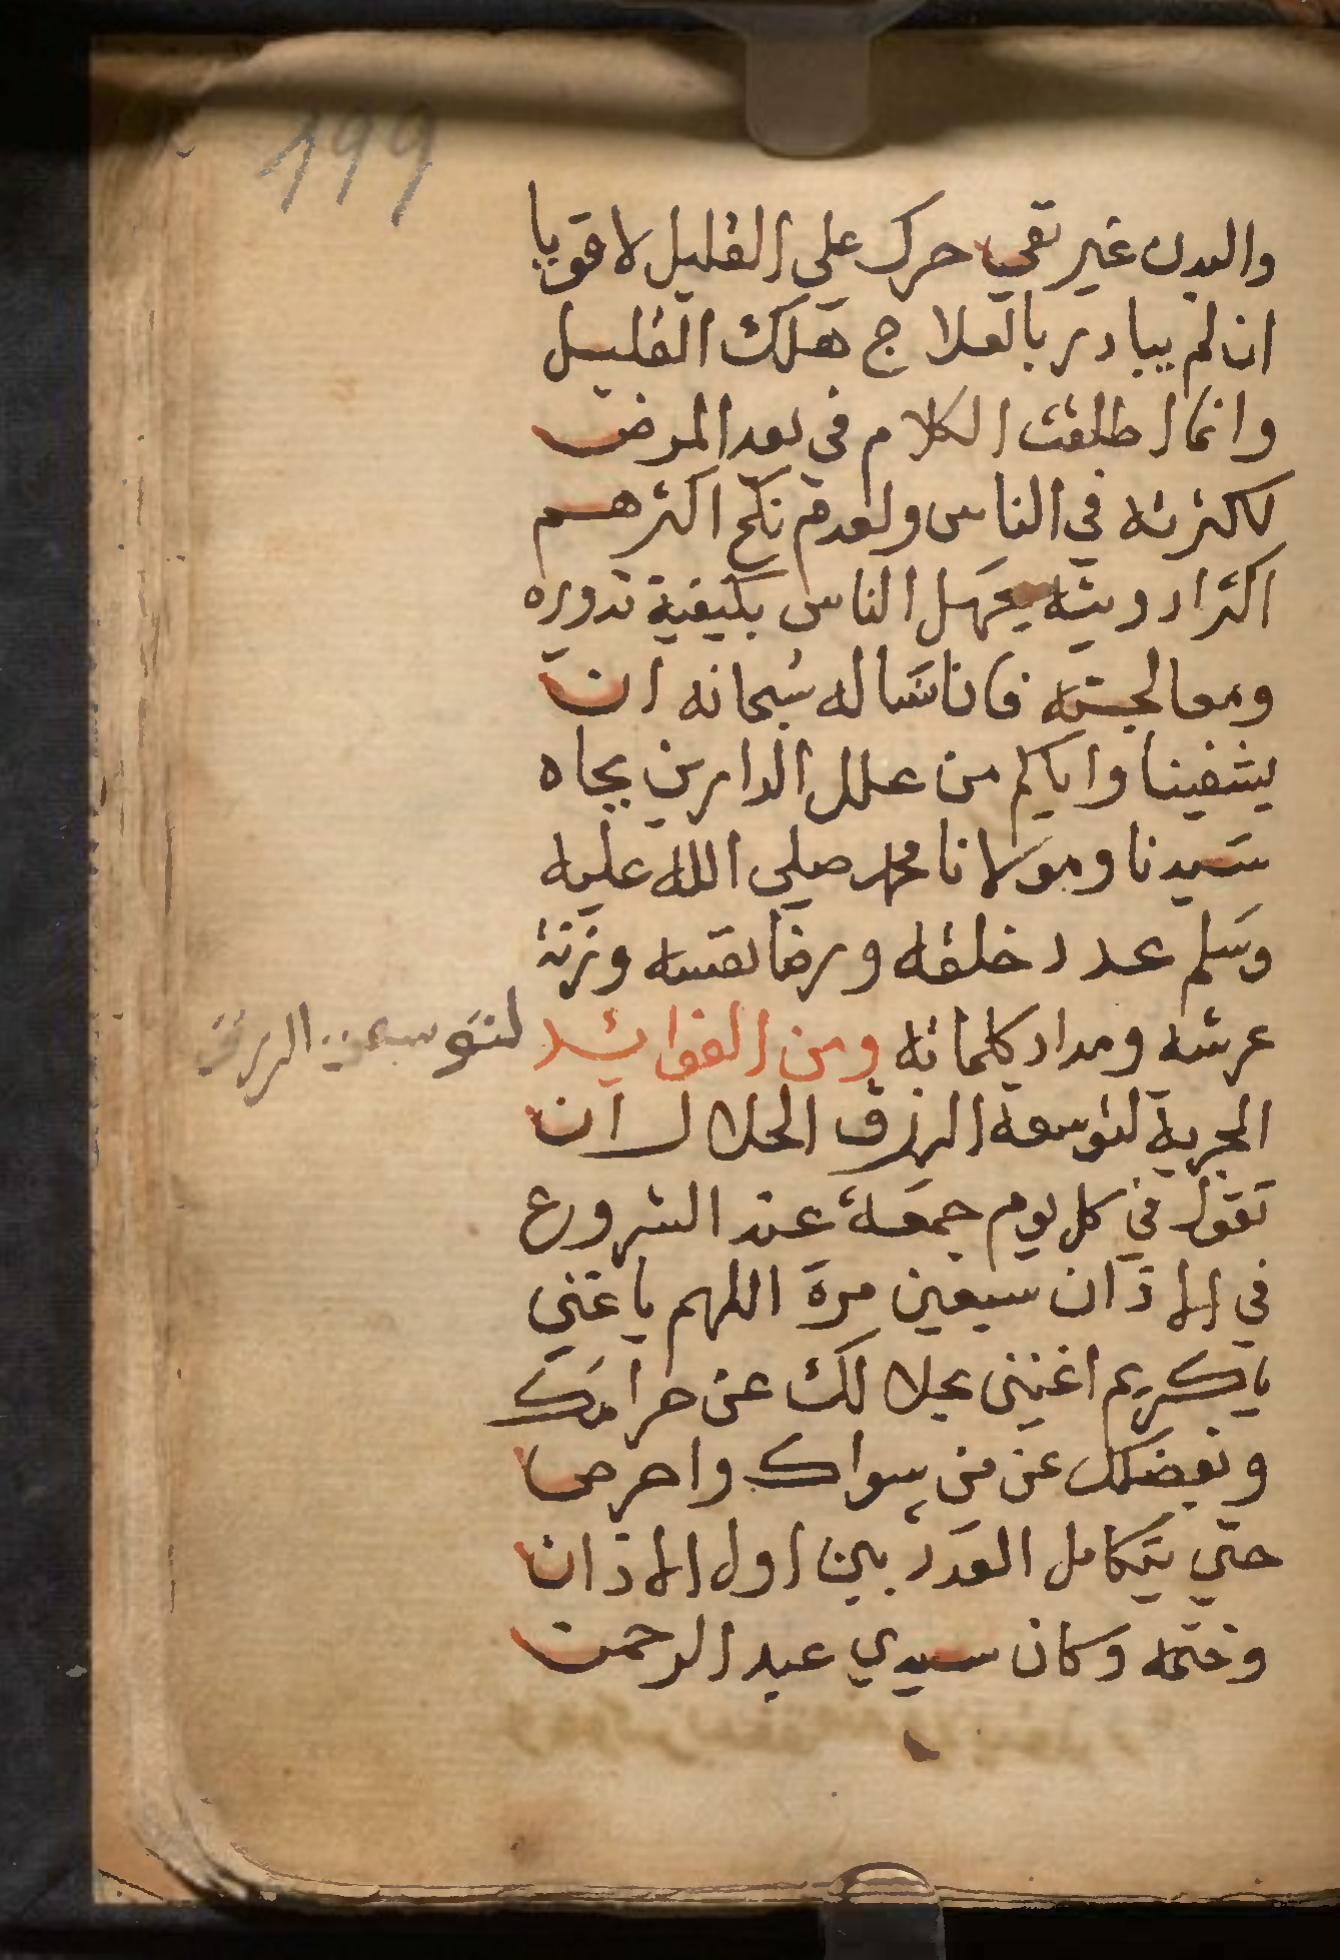 199
والبدن غير نقي حرك على القليل لا قويا
ان لم يبادر بالعلاج هلك القليل
وانما اطلقت الكلام في بعد المرض
لكثرته في الناس ولعدم نكح اكثرهم
اكثر ادويته يجهل الناس بكيفية تدوره
ومعالجته فانا نساله سبحانه ان
يشفينا واياكم من علل الدارين بجاه
سيدنا ومولانا محمد صلي الله عليه
وسلم عدد خلقه ورضا نفسه وزنة
عرشه ومداد كلماته ومن الفوائد
لتوسعة الرزق
المجربة لتوسعة الرزق الحلال ان
تقول في كل يوم جمعة عند الشروع
في الاذان سبعين مرة اللهم يا غني
يا كريم اغنني بحلالك عن حرامك
وبفضلك عن من سواك واحرص
حتي يتكامل العدد بين اول الاذان
وختمه وكان سيدي عبد الرحمن